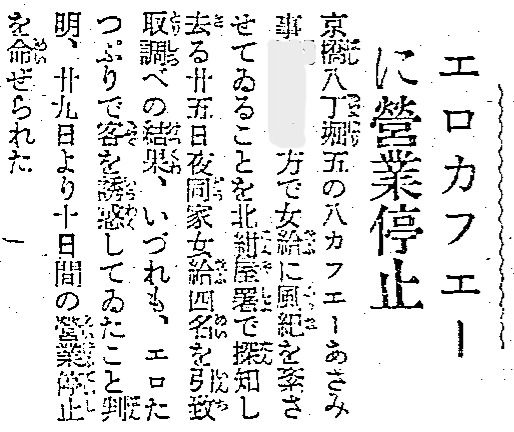 エロカフエー
に營業停止
京橋八丁堀五の八カフエーあさみ
事 方で女給に風紀を紊さ
せてゐることを北紺屋署で探知し
去る廿五日夜同家女給四名を引致
取調べの結果、いづれも、エロた
つぷりで客を誘惑してゐたこと判
明、廿九日より十日間の營業停止
を命ぜられた